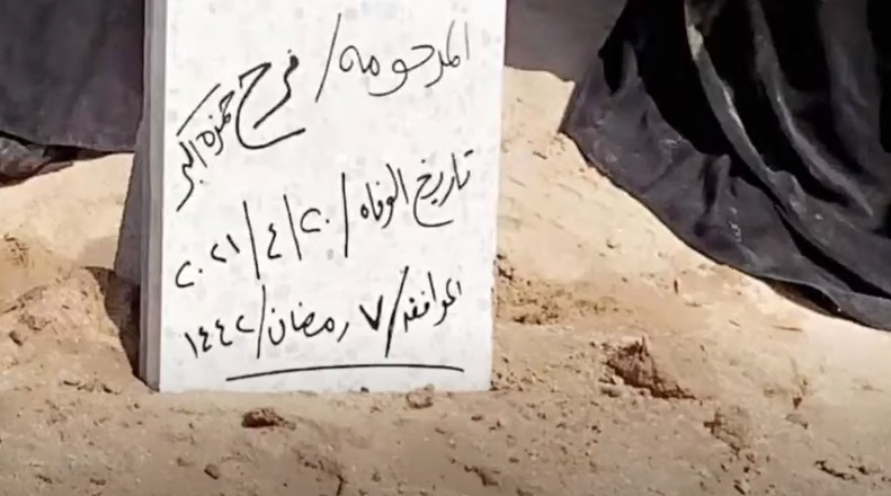 المرحومه / فرح حمزه اكبر
تاريخ الوفاه / ٢٠ / ٤ / ٢٠٢١
الموافق / ٧ رمضان / ١٤٤٢